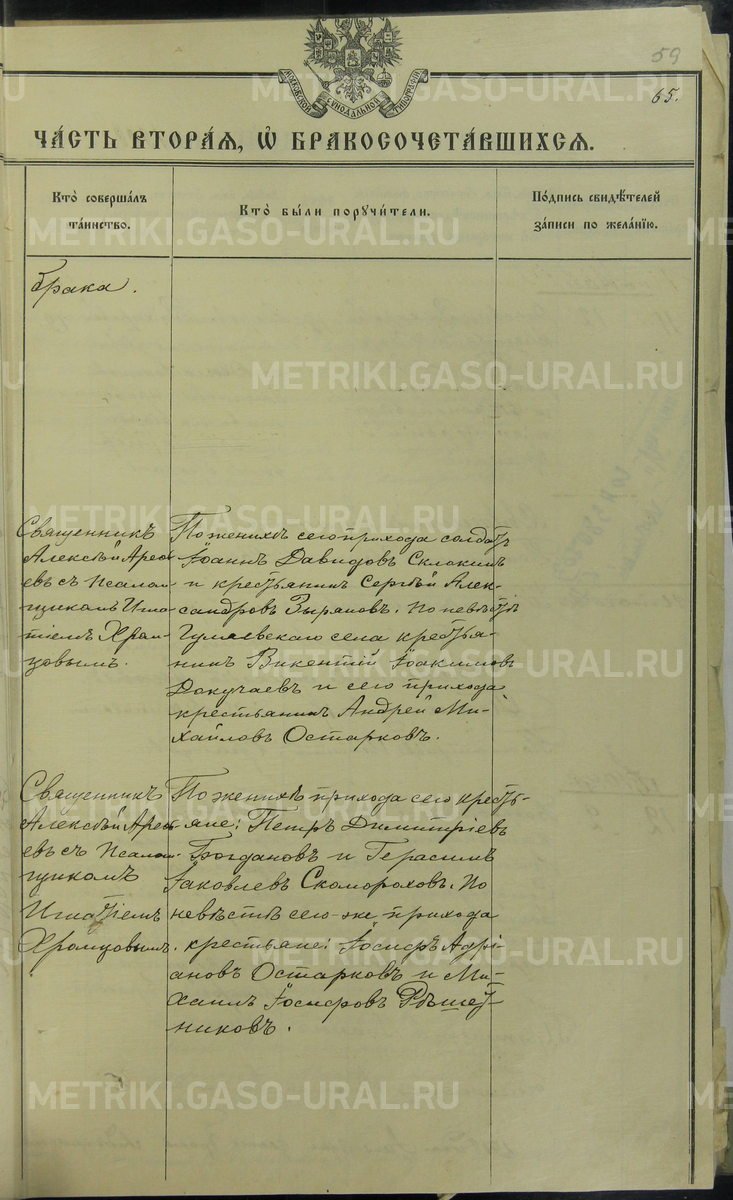 59
65.
МОСКОВСКОЙ СѴНОДАЛЬНОЙ ТИПОГРАФІИ
ЧА́СТЬ ВТОРА́Я, Ѡ҆ БРАКОСОЧЕТА́ВШИХСЯ.
Кто̀ соверша́лъ
та́инство.
Кто̀ бы́ли поручи́тели.
По́дпись свидѣ́телей
за́писи по жела́нїю.
брака.
Священникъ
Алексѣй Арефь-
евъ съ Псалом-
щикомъ Игна-
тіемъ Храм-
цовымъ.
По женихѣ сего прихода солдатъ
Іоаннъ Давидовъ Склюкинъ
и крестьянинъ Сергѣй Алек-
сандровъ Зыряновъ. По невѣстѣ
Гуляевскаго села крестья-
нинъ Викентій Іоакимовъ
Докучаевъ и сего прихода
крестьянинъ Андрей Ми-
хайловъ Остарковъ.
Священникъ
Алексѣй Арефь-
евъ съ Псалом-
щикомъ
Игнатіемъ
Храмцовымъ.
По женихѣ прихода сего кресть-
яне: Петръ Димитріевъ
Богдановъ и Герасимъ
Іаковлевъ Скоморохов. По
невѣстѣ сего-же прихода
крестьяне: Іосифъ Адрі-
ановъ Остарковъ и Ми-
хаилъ Іосифовъ Рѣшет-
никовъ.
METRIKI.GASO-URAL.RU